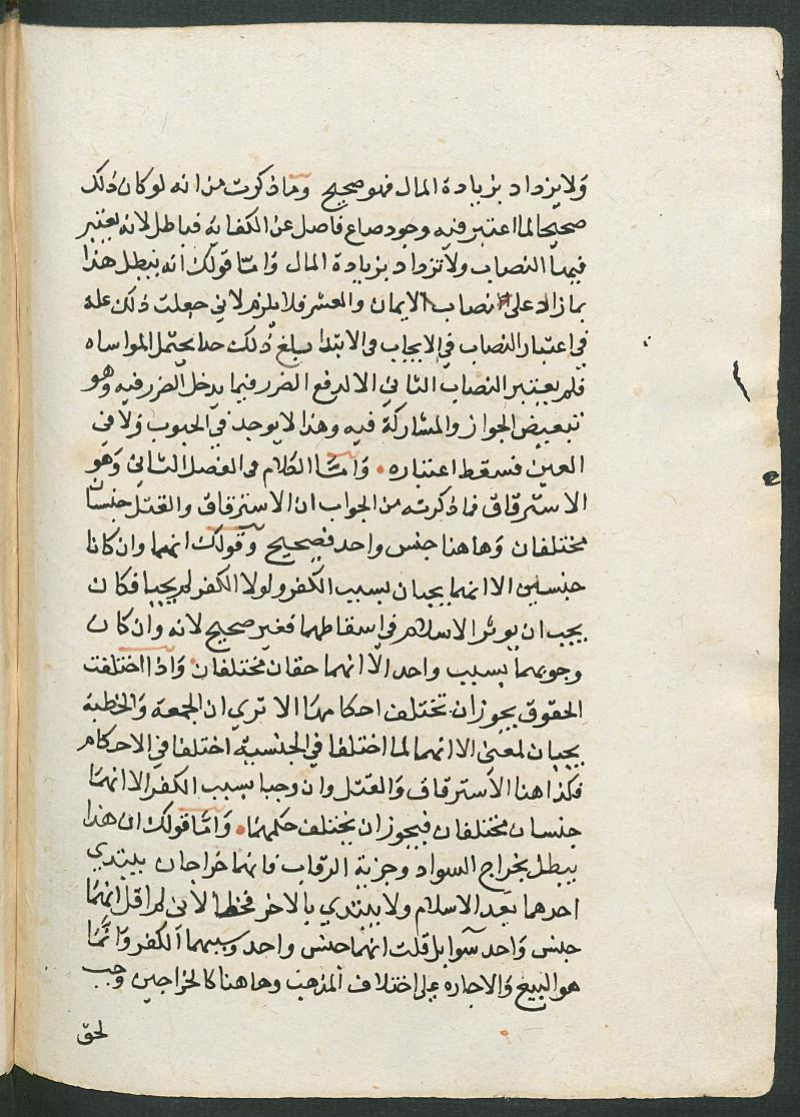 ولا يزداد بزيادة المال فهو صحيح وما ذكرت من انه لو كان ذلك
صحيحا لما اعتبر فيه وجود صاع فاضل عن الكفاية فباطل لانه يعتبر
فيها النصاب ولا تزداد بزيادة المال وامّا قولك انه يبطل هذا
بما زاد على نصاب الاثمان والعشر فلا يلزم لاني جعلت ذلك علة
في اعتبار النصاب في الايجاب في الابتدا يبلغ ذلك حدا يحتمل المواساه
فلم يعتبر النصاب الثاني الا لدفع الضرر فيما يدخل الضرر فيه وهو
تبعيض الجواز والمشاركة فيه وهذا لا يوجد في الحبوب ولا في
العين فسقط اعتباره وامّا الكلام في الفصل الثاني وهو
الاسترقاق فما ذكرته من الجواب ان الاسترقاق والقتل جنسان
مختلفان وهاهنا جنس واحد فصحيح وقولك انهما وان كانا
جنسين الا انهما يجبان بسبب الكفر ولولا الكفر لم يجبا فكان
يجب ان يوثر الاسلام في اسقاطهما فغير صحيح لانه وان كان
وجوبهما بسبب واحد الا انهما حقان مختلفان واذا اختلفت
الحقوق يجوز ان تختلف احكامها الا تري ان الجمعة والخطبة
يجبان لمعنى الا انهما لما اختلفا في الجنسية اختلفا في الاحكام
فكذا هنا الاسترقاق والقتل وان وجبا بسبب الكفر الا انهما
جنسان مختلفان فيجوز ان يختلف حكمهما وامّا قولك ان هذا
يبطل بخراج السواد وجزية الرقاب فانهما خراجان يبتدي
احدهما بعد الاسلام ولا يبتدي بالاخر فخطا لاني لم اقل انهما
جنس واحد سوا بل قلت انهما جنس واحد وسببهما الكفر وانّما
هو البيع والاجاره على اختلاف المذهب وهاهنا كالخراجين وجب
لحق